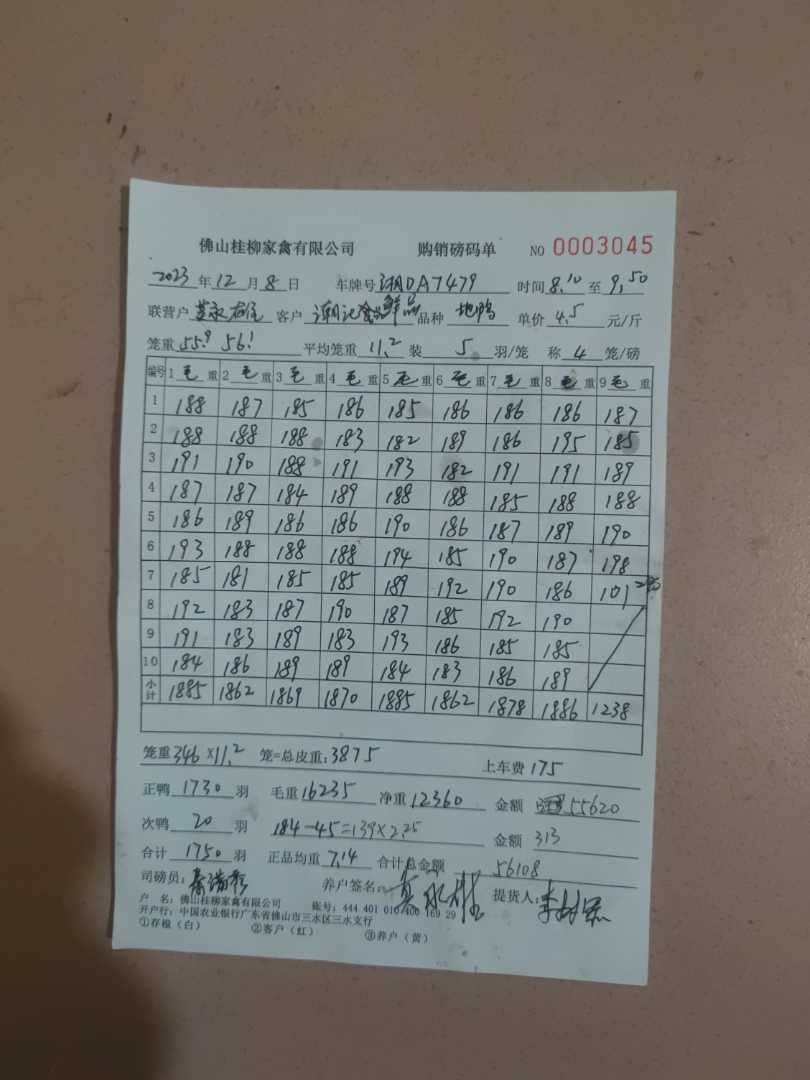 佛山桂柳家禽有限公司 购销磅码单 NO 0003045
2023年12月8日 车牌号 湘DA7479 时间8,10至9,50
联营户 客户 潮记食品鲜品 品种 地鸭 单价 4.5 元/斤
笼重 55.9 56.1 平均笼重 11.2 装 5 羽/笼 称 4 笼/磅
编号 1毛重 2毛重 3毛重 4毛重 5毛重 6毛重 7毛重 8毛重 9毛重
1 188 187 185 186 185 186 186 186 187
2 188 188 188 183 182 189 186 195 185
3 191 190 188 191 193 182 191 191 189
4 187 187 184 189 188 188 185 188 188
5 186 189 186 186 190 186 187 189 190
6 193 188 188 188 194 185 190 187 198
7 185 181 185 185 189 192 190 186 101
8 192 183 187 190 187 185 192 190
9 191 183 189 183 193 186 185 185
10 184 186 189 189 184 183 186 189
小计 1885 1862 1869 1870 1885 1862 1878 1886 1238
笼重 346×11.2 笼=总皮重:3875 上车费 175
正鸭 1730 羽 毛重 16235 净重 12360 金额 55620
次鸭 20 羽 184-45=139×2.25 金额 313
合计 1750 羽 正品均重 7.14 合计总金额 56108
司磅员: 养户签名: 提货人:
户 名:佛山桂柳家禽有限公司 账号:444 401 010 400 169 29
开户行:中国农业银行广东省佛山市三水区三水支行
①存根(白) ②客户(红) ③养户(黄)